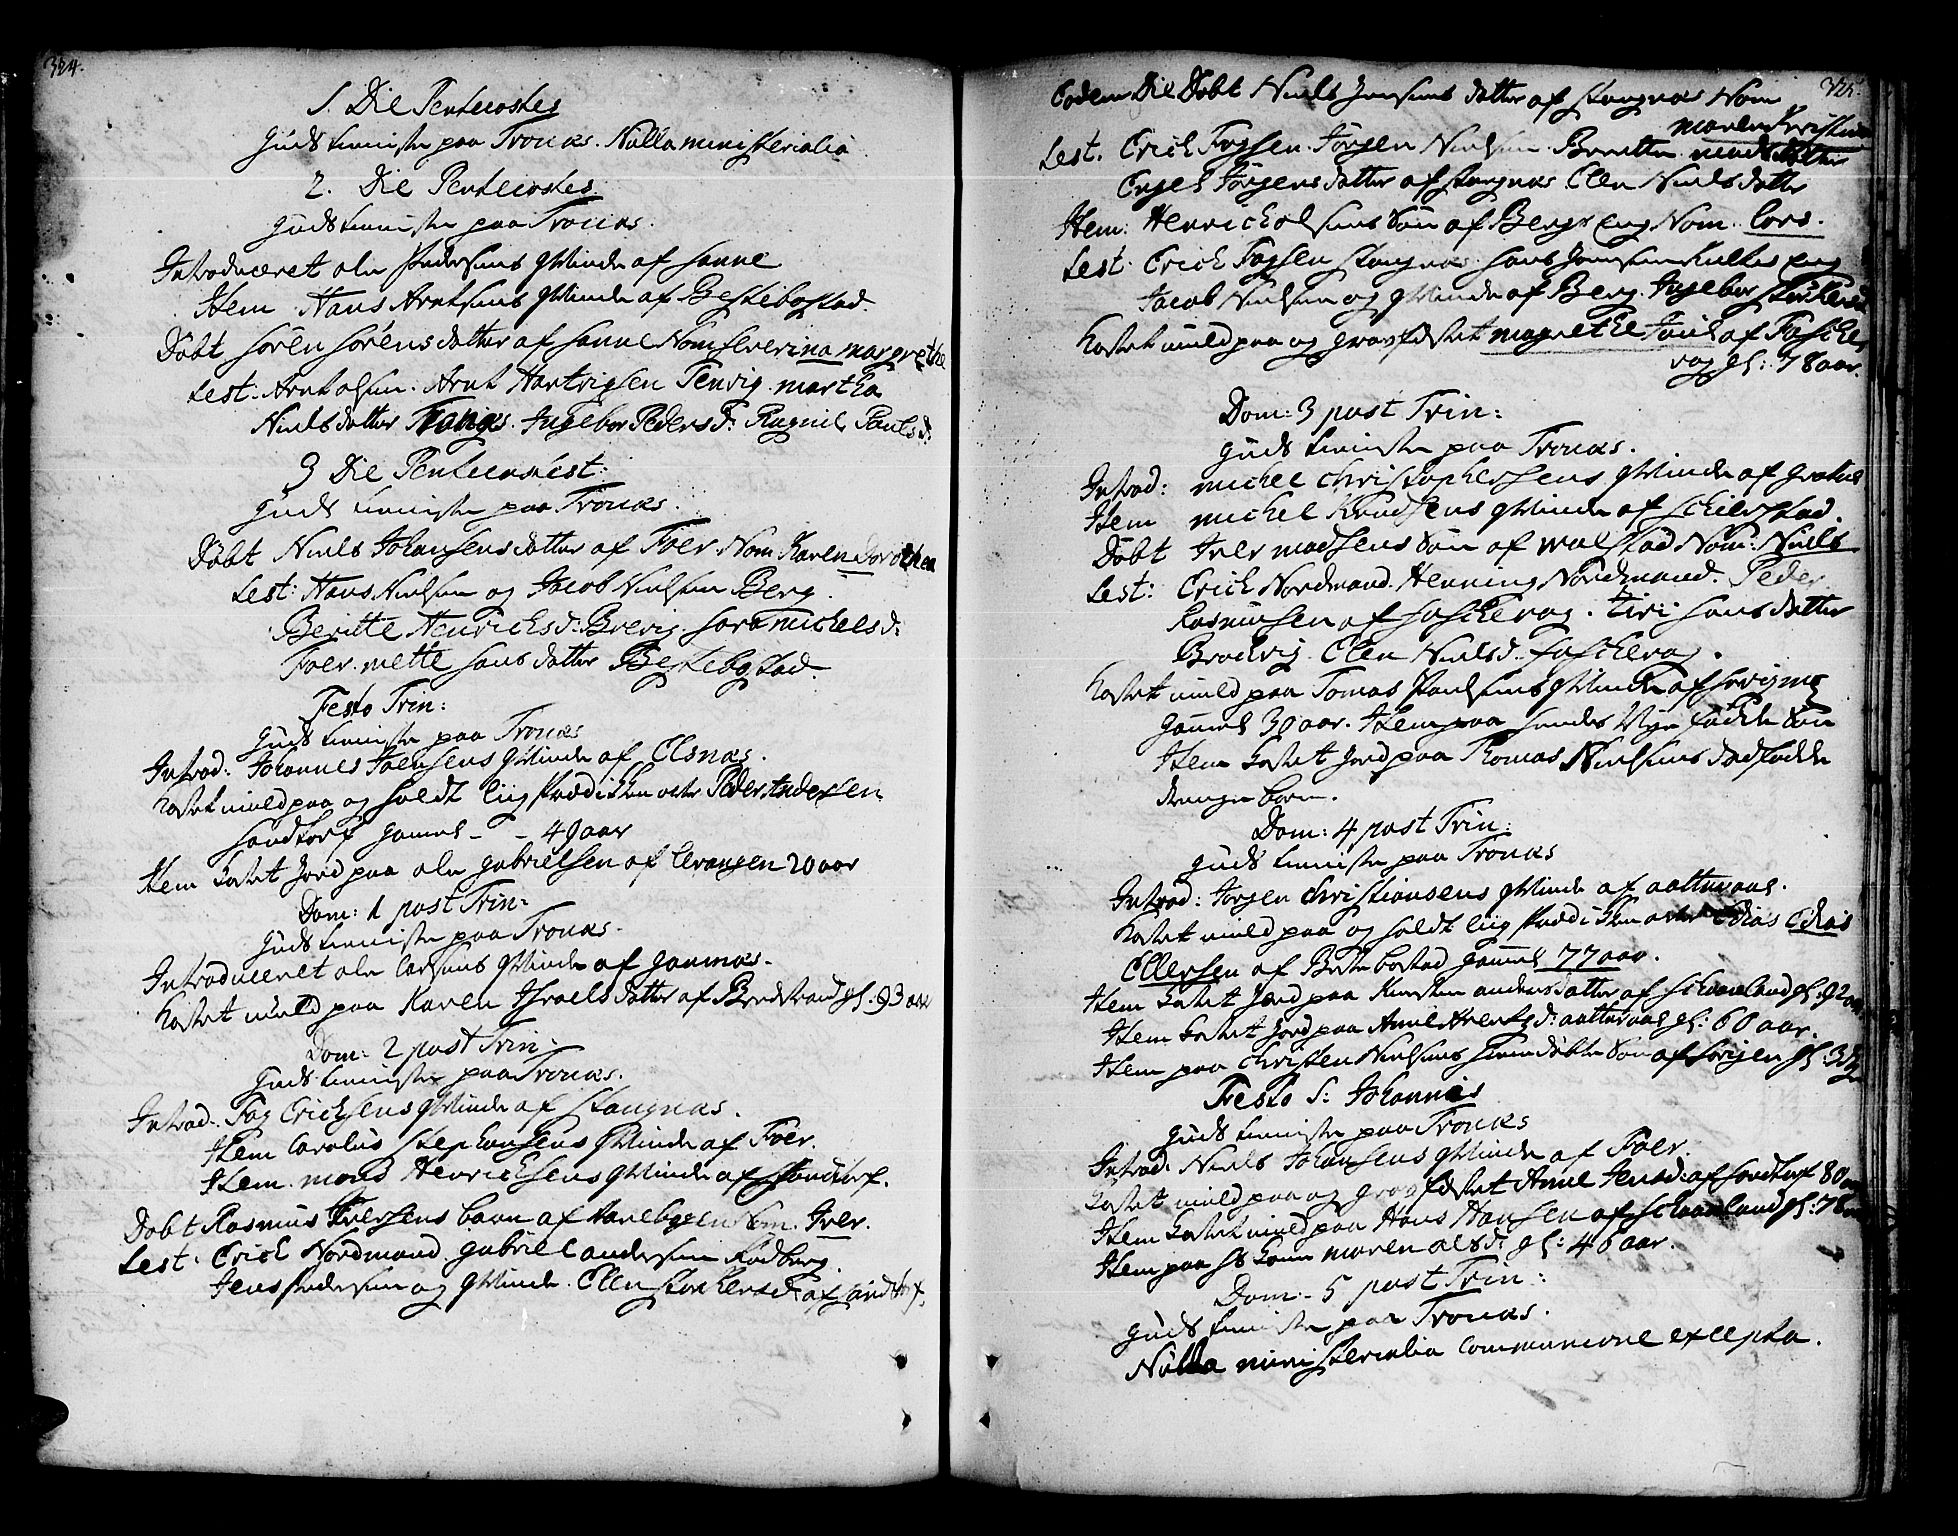 324.
1. Die Pentecostes
Gudstieniste paa Tronæs. Nulla ministerialia
2. Die Pentecostes
Gudstieniste paa Tronæs.
Introduceret ole Pedersens Qvinde af Sanne
Item Hans Arntsens Qvinde af Bestebostad.
Döbt Sören Sörens datter af Sanne Nom Severina margrethe
Test: Arnt olsen. Arnt Hartvigsen Tenvig. martha
Niels datter Ingebor Pedersd: Ragnil Pauls d:
3 Die Pentecost:
Guds tieniste paa Tronæs.
Döbt Niels Johansens datter af Foer Nom Karen Dorothea
Test: Hans Nielsen og Jacob Nielsen Berg.
Beritte Henrichsd: Brevig. Sara michelsd:
Foer. mette Hans datter Bestebostad.
Festo Trin:
Guds tieniste paa Tronæs
Introd: Johannes Joensens Qvinde af Elsnæs.
Kastet muld paa og holdt Liig Prædicken over Peder Andersen
Sandtorf gamel - - 49 aar
Item Kastet Jord paa ole gabrielsen af Grangen 20 aar
Dom: 1 post Trin:
Guds tieniste paa Tronæs.
Introduceret ole Larsens Qvinde af ganmæs.
Kastet muld paa Karen Israels datter af Bredstrand gl: 93 aar
Dom: 2 post Trin:
Guds tieniste paa Tronæs.
Introd: Fog Erichsens Qvinde af Stangnæs.
Item Carolus Stephansens Qvinde af Foer.
Item. mons Henrichsens Qvinde af Sandtorf.
Döbt Rasmus Iversens barn af Nom. Iver.
Test. Erich Nordmand. gabriel andersen Rödberg.
Jens Pedersen og Qvinde. Ellen Storkersd: af Sandtorf.
325.
Eodem Die Döbt Niels Jensens datter af Stangnæs Nom
maren Kristina
Test. Erich Fogsen. Jörgen Nielsen. Beritte mads datter
Engel Jörgens datter af Stangnæs. Ellen Niels datter
Item: Henrich olsens Sön af Bergs eng Nom. Lars.
Test. Erich Fogsen Stangnæs. Hans Jensen eng
Jacob Nielsen og Qvinde af Berg. Ingebor Störkersd
Kastet muld paa og gravfæstet magrethe Jönis af Fasche
vog gl: 78 aar.
Dom: 3 post Trin:
Guds tieniste paa Tronæs.
Introd: michel Christophersens Qvinde af
Item michel Knudsens Qvinde af Schierstad.
Döbt Iver madsens Sön af Wolstad Nom: Niels
Test: Erich Nordmand. Henning Nordmand. Peder
Rasmussen af Fascherog. Siri Hans datter
Brodvig. Ellen Nielsd. Fascherog.
Kastet muld paa Tomas Paulsens Qvinde af
gamel 30 aar. Item paa hendes Nye födde Sön
Item Kastet Jord paa Thomas Nielsens dödfödde
drenge barn.
Dom: 4 post Trin:
Guds tieniste paa Tronæs
Introd: Jörgen Christiansens Qvinde af aattervaas.
Kastet muld paa og holdt Liig Prædicken over Elias Elias
Ellersen af Bestebostad gamel 77 aar.
Item Kastet Jord paa Kirsten anders datter af Schaanland gl: 92 aar
Item Kastet Jord paa Anne Arentzd: aattervaas gl: 60 aar.
Item paa Christen Nielsens hiemdöbte Sön af gl: 3
Festo S: Johannis
Guds tieniste paa Tronæs
Introd: Niels Johansens Qvinde af Foer.
Kastet muld paa og gravfæstet Anne Jensd: af Sandtorf 80 aar
Item Kastet muld paa Hans Hansen af Schaanland gl: 78 aar
Item paa maren olsd: gl: 46 aar.
Dom: 5 post Trin:
Guds tieniste paa Tronæs.
Nulla ministerialia Communione excepta.